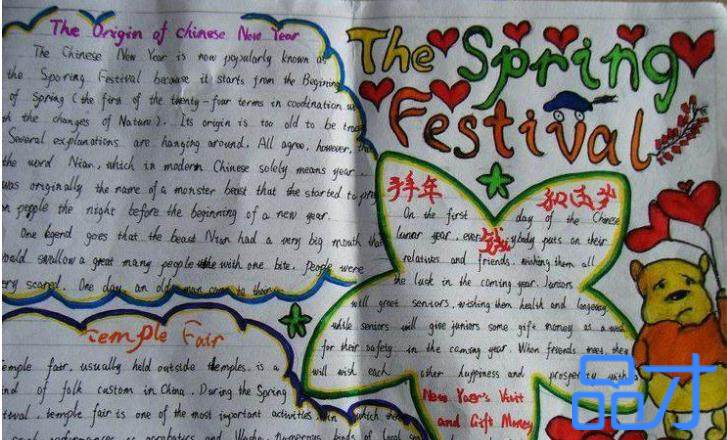 The Origin of Chinese New Year
The Chinese New Year is now popularly known as
the Sporing Festival because it starts from the Begining
of spring (the first of the twenty-four terms in coodination
the changes of Nature). Its origin is too old to be
Several explanations are hanging around. All agree, however, that
the word Nian, which in modern Chinese solely means year,
was originally the name of a monster beast that started to
on people the night before the beginning of a new year.
One legend goes that the beast Nian had a very big mouth that
would swallow a great many people with one bite. People were
very scared. One day, an old man came to their
Temple Fair
Temple fair, usually held outside temples, is a
kind of folk custom in China. During the Spring
Festival, temple fair is one of the most important activities
The Spring
Festival
拜年
On the first day of the Chinese
lunar year, everybody puts on their
relatives and friends, wishing them all
the luck in the coming year. Juniors
will greet seniors, wishing them health and longevity
while seniors will give juniors some gift money as a
for their safety in the coming year. When friends meet they
will wish each other happiness and prosperity with
New Year's Visit
and Gift Money
品才